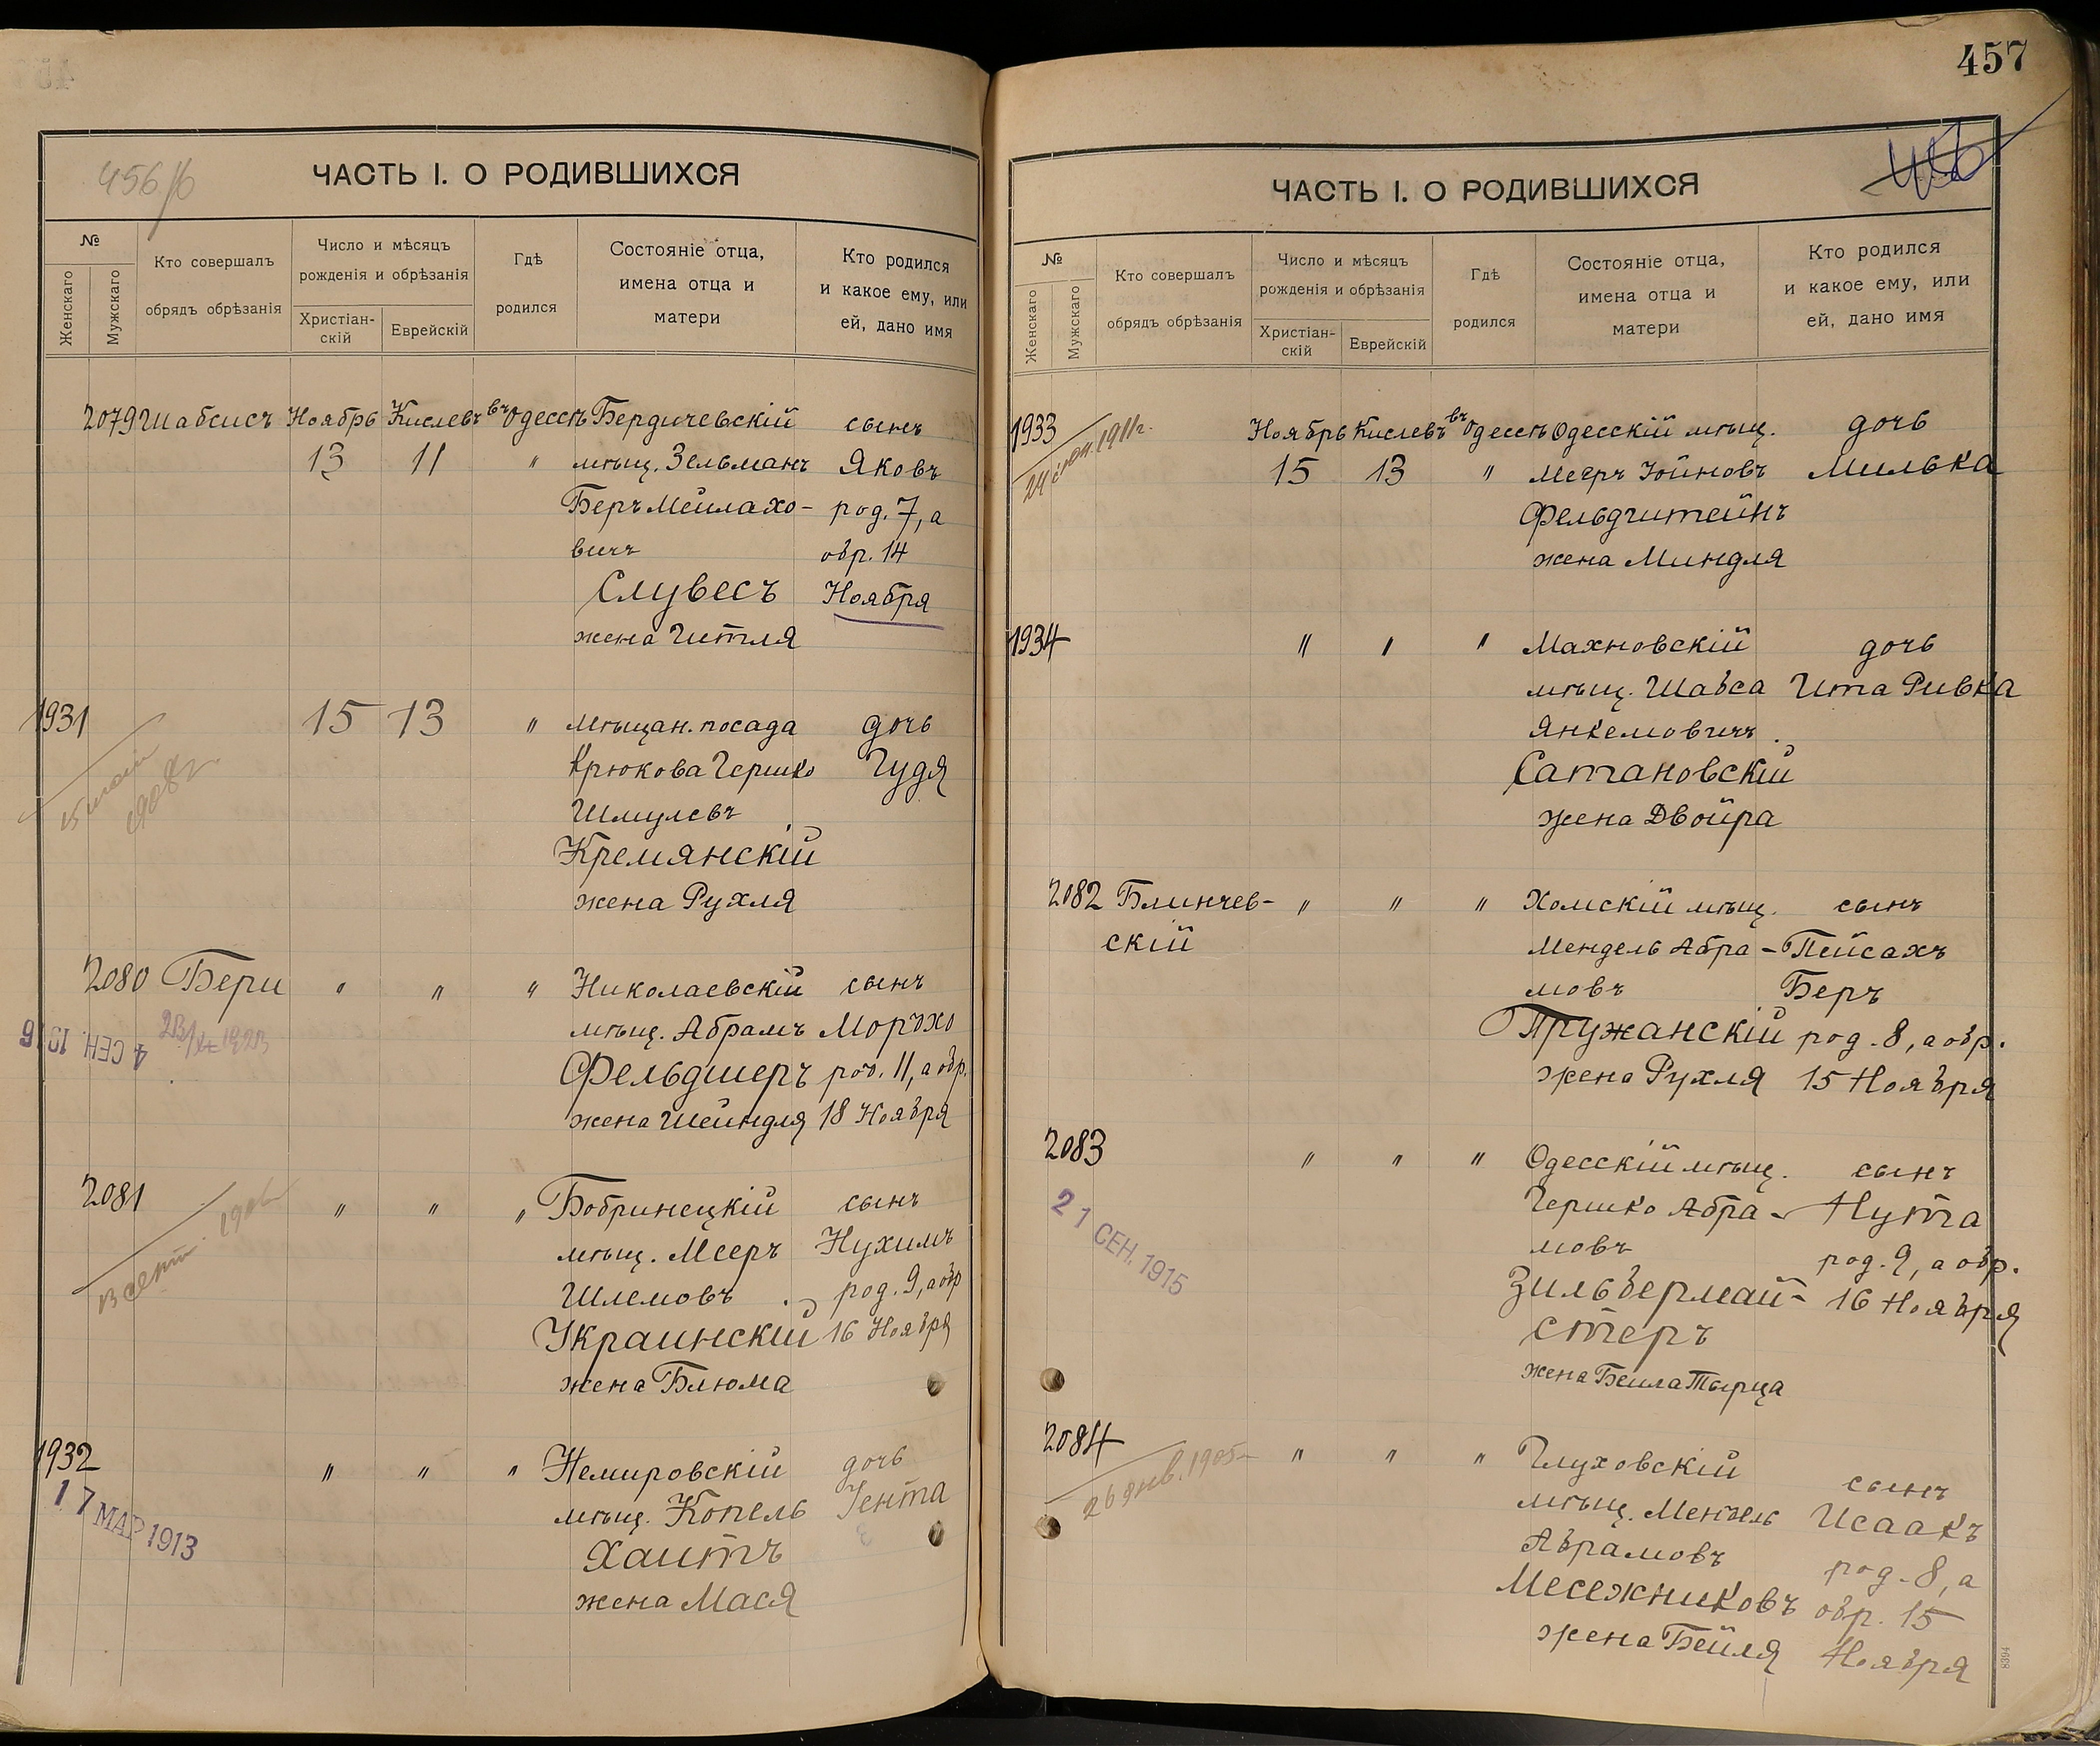 456/б
ЧАСТЬ I. О РОДИВШИХСЯ
№
Женскаго
Мужскаго
Кто совершалъ
обрядъ обрѣзанія
Число и мѣсяцъ
рожденія и обрѣзанія
Христіан-
скій
Еврейскій
Гдѣ
родился
Состояніе отца,
имена отца и
матери
Кто родился
и какое ему, или
ей, дано имя
2079 Шабсисъ Ноябрь Кислевъ въ Одессѣ Бердичевскій сынъ
13 11 " мѣщ. Зельманъ Яковъ
Беръ Мейлахо- род. 7, а
вичъ обр. 14
Слувесъ Ноября
жена Гитля
1931 15 13 " мѣщан. посада дочь
Крюкова Гершко Гудя
Шмулевъ
1908г.
Кремянскій
жена Рухля
2080 Бери " " " Николаевскій сынъ
4 СЕН. 1916 мѣщ. Абрамъ Мордхо
Фельдшеръ род. 11, а обр.
жена Шейндля 18 Ноября
2081 " " " Бобринецкій сынъ
мѣщ. Мееръ Нухимъ
Шлемовъ род. 9, а обр
Украинскій 16 Ноября
жена Блюма
1932 " " " Немировскій дочь
17 МАР 1913 мѣщ. Копель Іента
Хаитъ
жена Мася
457
ЧАСТЬ I. О РОДИВШИХСЯ
№
Женскаго
Мужскаго
Кто совершалъ
обрядъ обрѣзанія
Число и мѣсяцъ
рожденія и обрѣзанія
Христіан-
скій
Еврейскій
Гдѣ
родился
Состояніе отца,
имена отца и
матери
Кто родился
и какое ему, или
ей, дано имя
1933 Ноябрь Кислевъ въ Одессѣ Одесскій мѣщ. дочь
1911г. 15 13 " Мееръ Іойновъ Милька
Фельдштейнъ
жена Миндля
1934 " " " Махновскій дочь
мѣщ. Шабса Ита Ривка
Янкемовичъ
Сатановскій
жена Двойра
2082 Блинчев- " " " Хомскій мѣщ. сынъ
скій Мендель Абра- Пейсахъ
мовъ Беръ
Пружанскій род. 8, а обр.
жена Рухля 15 Ноября
2083 " " " Одесскій мѣщ. сынъ
21 СЕН. 1915 Гершко Абра- Нута
мовъ род. 9, а обр.
Зильбермай- 16 Ноября
стеръ
жена Беила Тырца
2084 " " " Глуховскій сынъ
26 янв. 1905 мѣщ. Мендель Исаакъ
Абрамовъ род. 8, а
Месежниковъ обр. 15
жена Бейля Ноября
8394